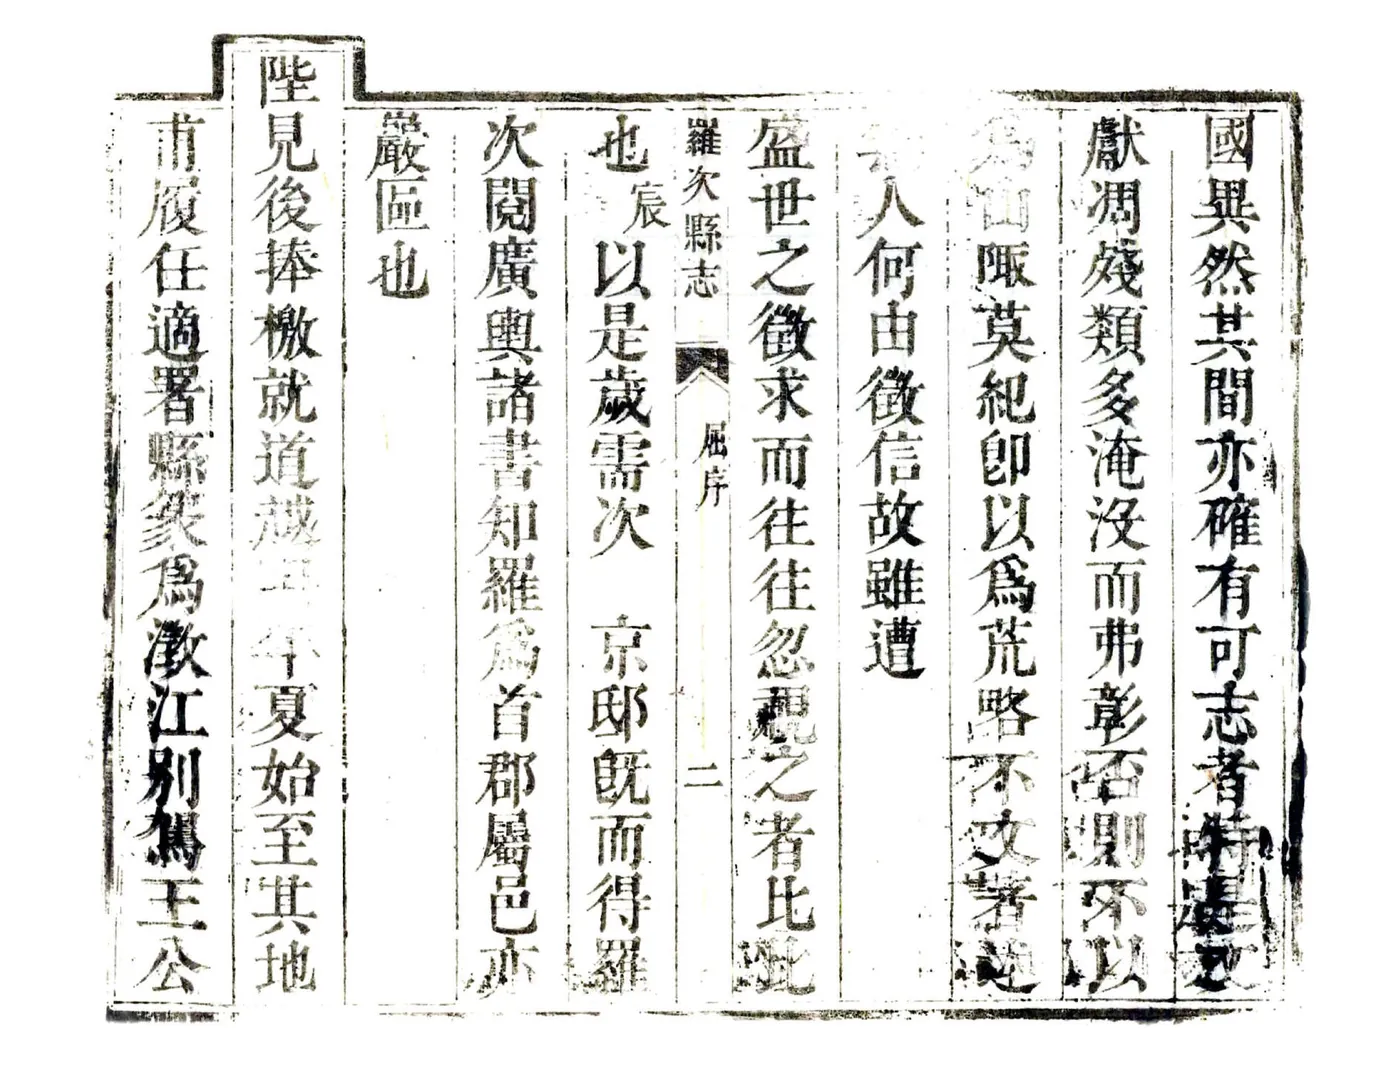 國異然其間亦確有可志者特是文
獻凋殘類多淹沒而弗彰否則不以
爲山陬莫紀卽以爲荒略不文著述
人何由徵信故雖遭
盛世之徵求而往往忽視之者比比
羅次縣志 屈序 二
也宸以是歲需次 京邸旣而得羅
次閱廣輿諸書知羅爲首郡屬邑亦
巖區也
陛見後捧檄就道越 年夏始至其地
甫履任適署縣篆爲澂江別駕王公